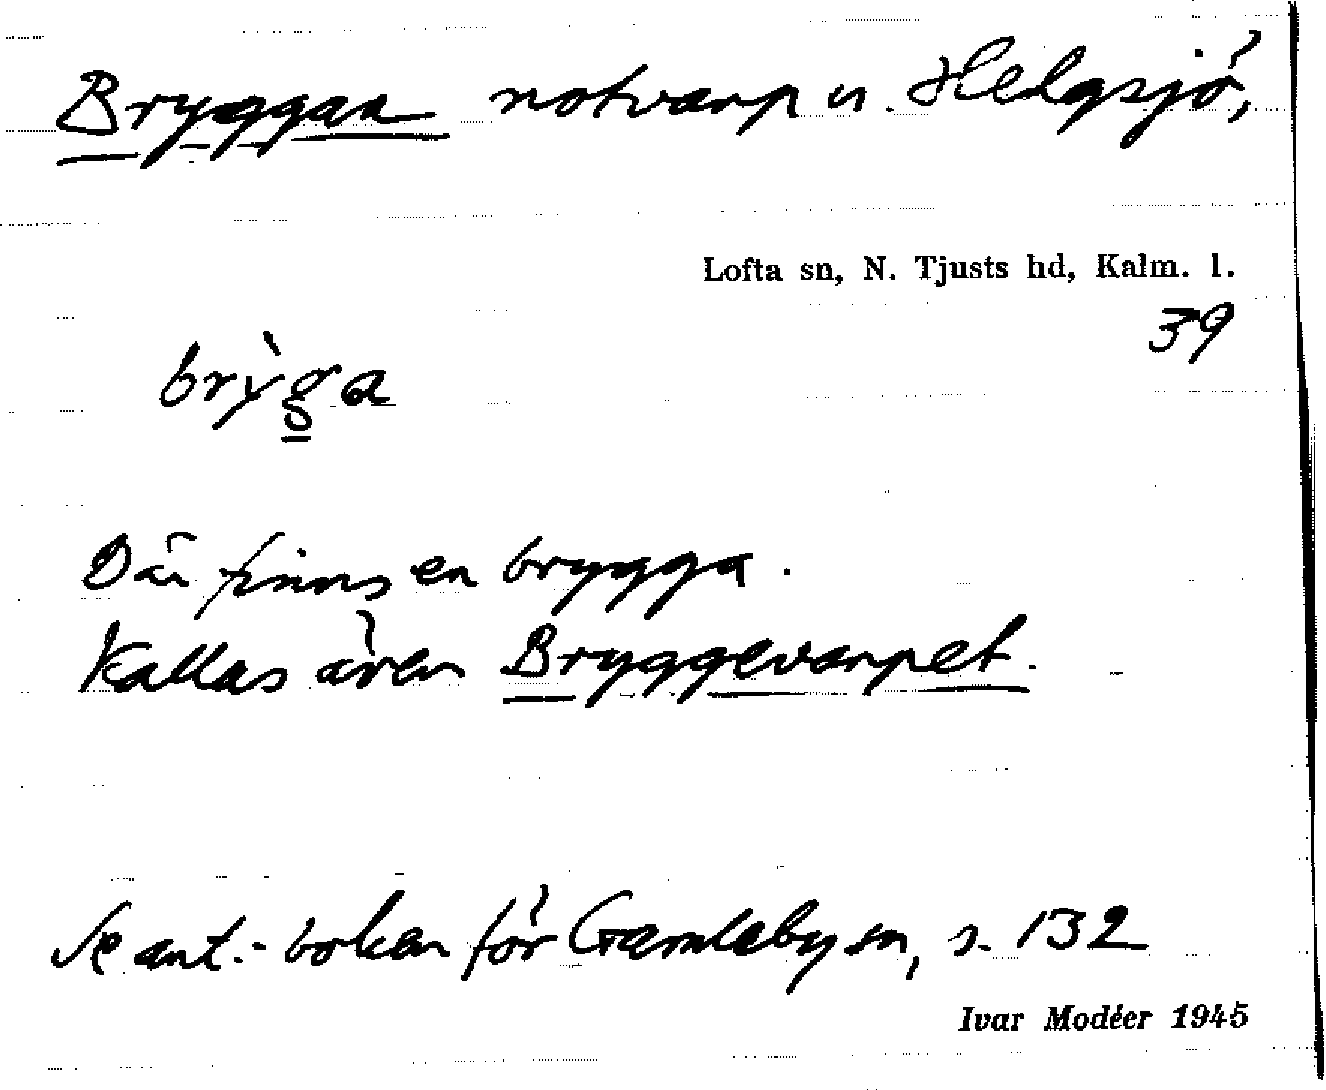 Bryggan notvarp v. Helgsjö,
Lofta sn, N. Tjusts hd, Kalm. l.
39
brỳga
Där finns en brygga.
Kallas även Bryggevarpet.
Se ant.-boken för Gamleby sn, s. 132
Ivar Modéer 1945